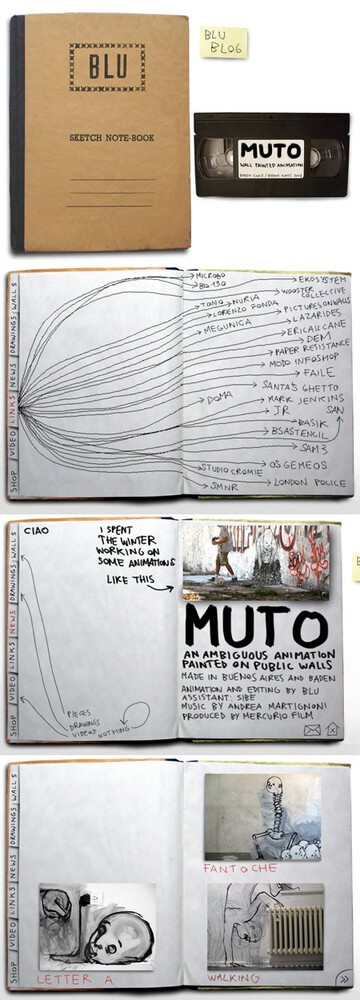 BLU
SKETCH NOTE-BOOK
BLU
BLOG
MUTO
WALL PAINTED ANIMATION
SHOP VIDEO LINKS NEWS DRAWINGS WALLS
MICROBO
BO 130
EKOSYSTEM
WOOSTER
COLLECTIVE
TONO
NURIA
LORENZO FONDA
PICTURES ON WALLS
MEGUNICA
LAZARIDES
ERICAILCANE
DEM
PAPER RESISTANCE
MODO INFOSHOP
FAILE
SANTA'S GHETTO
DOMA
MARK JENKINS
JR
SAN
BASIK
BSASTENCIL
SAM3
STUDIO CROMIE
OS GEMEOS
SMNR
LONDON POLICE
SHOP VIDEO LINKS NEWS DRAWINGS WALLS
CIAO
I SPENT
THE WINTER
WORKING ON
SOME ANIMATIONS
LIKE THIS
PIECES
DRAWINGS
VIDEOS
NOTHING
MUTO
AN AMBIGUOUS ANIMATION
PAINTED ON PUBLIC WALLS
MADE IN BUENOS AIRES AND BADEN
ANIMATION AND EDITING BY BLU
ASSISTANT: SIBE
MUSIC BY ANDREA MARTIGNONI
PRODUCED BY MERCURIO FILM
SHOP VIDEO LINKS NEWS DRAWINGS WALLS
FANTOCHE
LETTER A
WALKING